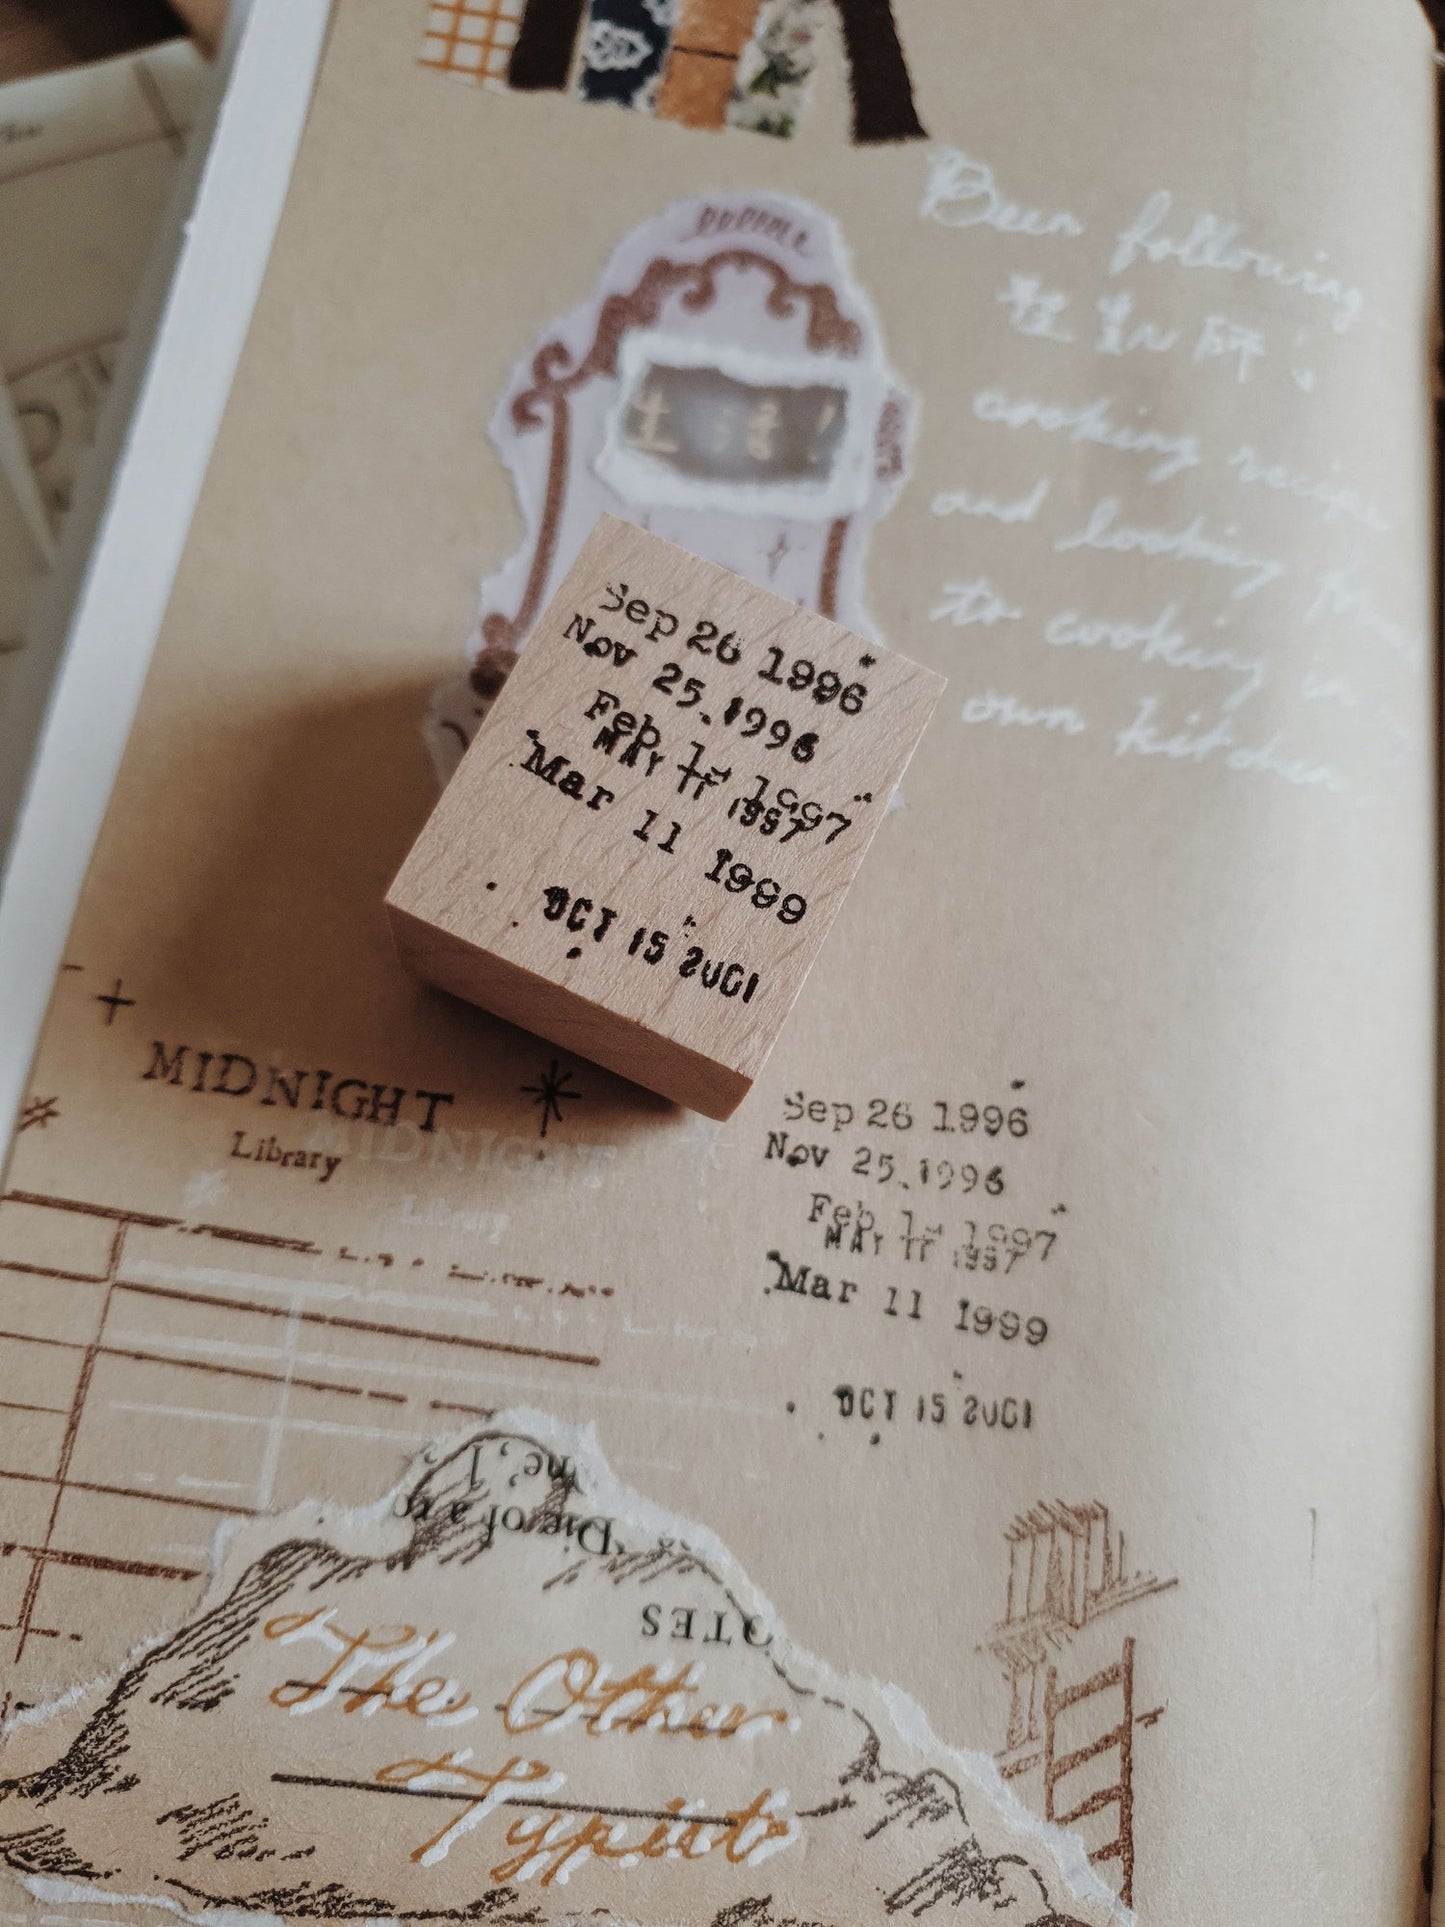 Been following
cooking recipe
and looking
to cooking in
own kitchen
生活!
Sep 26 1996
Nov 25.1996
Feb 1 1997
MAY 11 1997
Mar 11 1999
OCT 15 2001
MIDNIGHT
Library
MIDNIGHT
Library
Sep 26 1996
Nov 25.1996
Feb 1 1997
MAY 11 1997
Mar 11 1999
OCT 15 2001
Die of a
NOTES
The Other
Typist